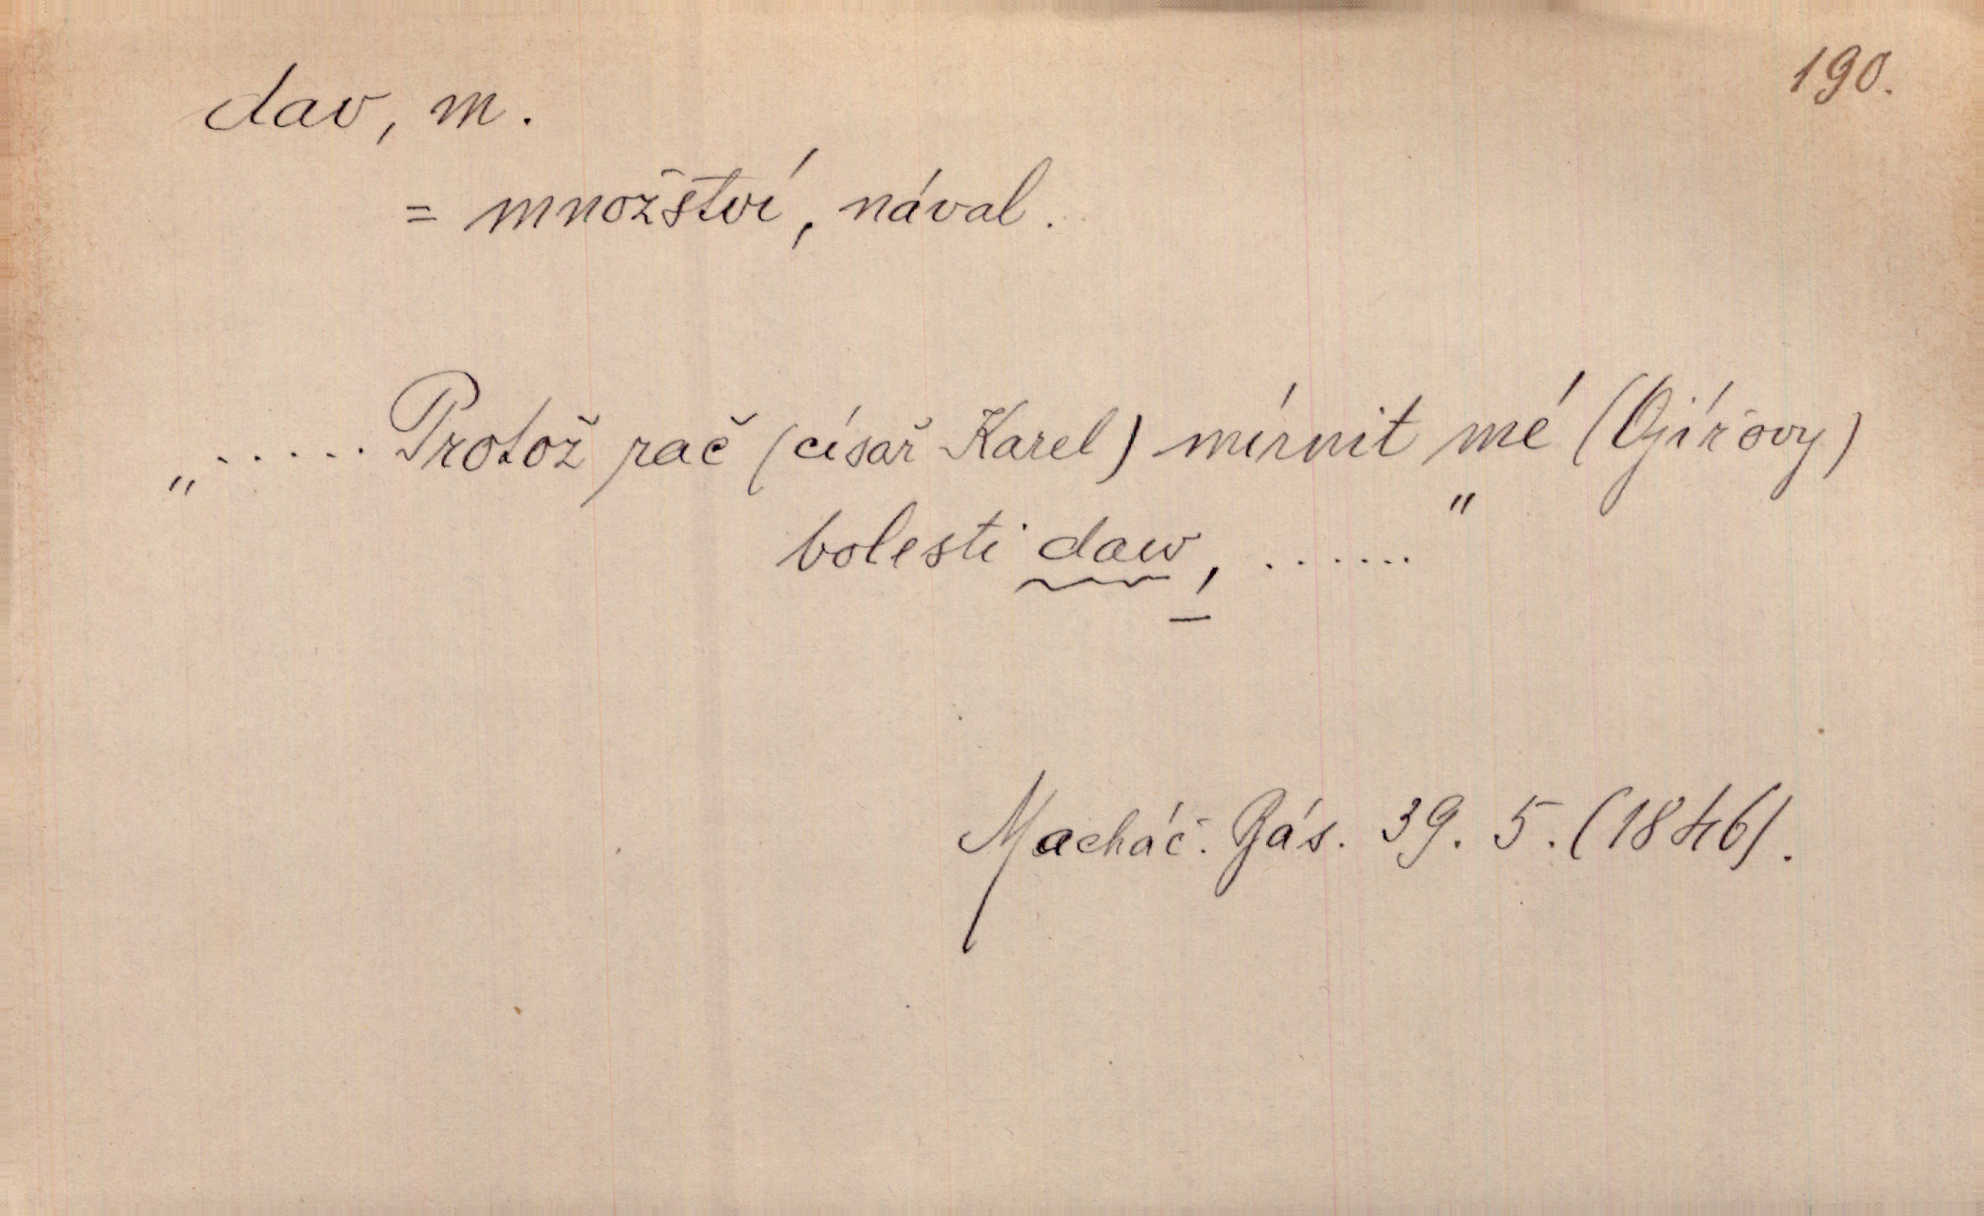 190.
dav, m.
= množství, nával.
„ ..... Protož rač (císař Karel) mírnit mé (Ojířovy)
bolesti daw, ......."
Macháč. Bás. 39. 5. (1846).